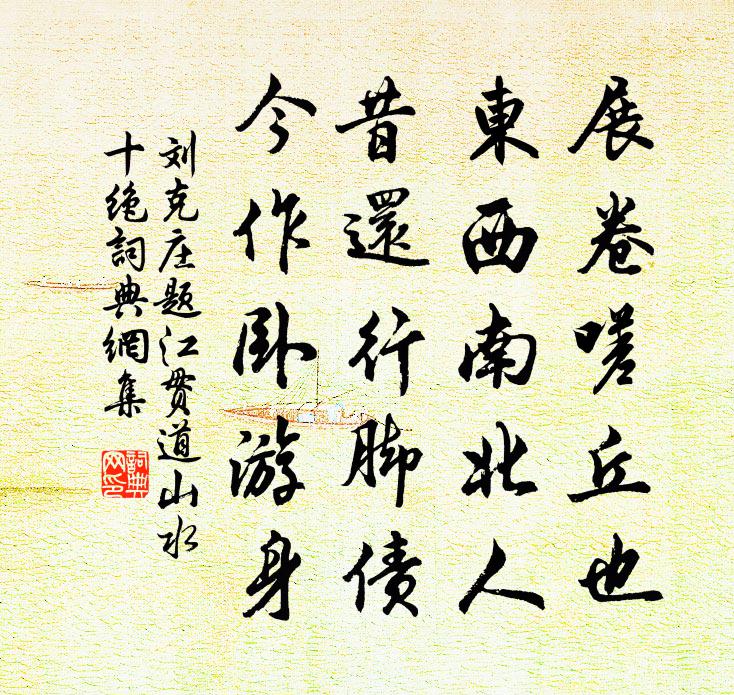 展卷嗟丘也
東西南北人
昔還行脚债
今作卧游身
刘克庄题江贯道山水
十绝詞典網集
詞典網印